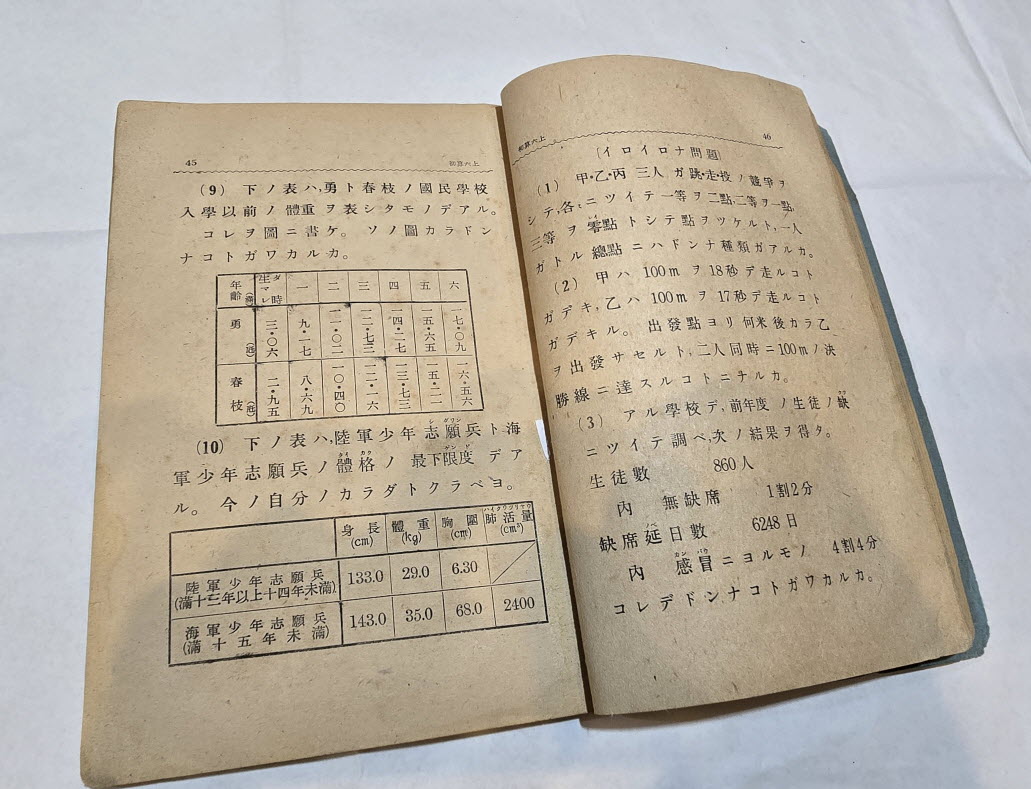 45 初算六上
(9) 下ノ表ハ,勇ト春枝ノ國民學校
入學以前ノ體重ヲ表シタモノデアル。
コレヲ圖ニ書ケ。 ソノ圖カラドン
ナコトガワカルカ。
年齡(滿) 生マレタ時 一 二 三 四 五 六
勇(瓩) 三・〇六 九・一七 一一・〇二 一二・七三 一四・二七 一五・六五 一七・〇九
春枝(瓩) 二・九五 八・六九 一〇・四〇 一二・一六 一三・七三 一五・二一 一六・五六
シ グワン
(10) 下ノ表ハ,陸軍少年志願兵ト海
タイ カク ゲン ド
軍少年志願兵ノ體格ノ最下限度デア
ル。 今ノ自分ノカラダトクラベヨ。
ハイクワツリヤウ
身長(cm) 體重(kg) 胸圍(cm) 肺活量(cm³)
陸軍少年志願兵
(滿十三年以上十四年未滿) 133.0 29.0 6.30
海軍少年志願兵
(滿十五年未滿) 143.0 35.0 68.0 2400
初算六上 46
[イロイロナ問題]
(1) 甲・乙・丙 三人 ガ跳・走・投ノ競爭ヲ
シテ,各〻ニツイテ一等ヲ二點,二等ヲ一點,
レイ
三等ヲ零點トシテ點ヲツケルト,一人
ガトル總點ニハドンナ種類ガアルカ。
(2) 甲ハ 100m ヲ18秒デ走ルコト
ガデキ,乙ハ 100m ヲ 17秒デ走ルコト
ガデキル。 出發點ヨリ何米後カラ乙
ヲ出發サセルト,二人同時ニ100mノ決
勝線ニ達スルコトニナルカ。
(3) アル學校デ,前年度ノ生徒ノ缺
ニツイテ調ベ,次ノ結果ヲ得タ。
生徒數 860人
內 無缺席 1割2分
ノベ
缺席延日數 6248日
カン バウ
內 感冒ニヨルモノ 4割4分
コレデドンナコトガワカルカ。